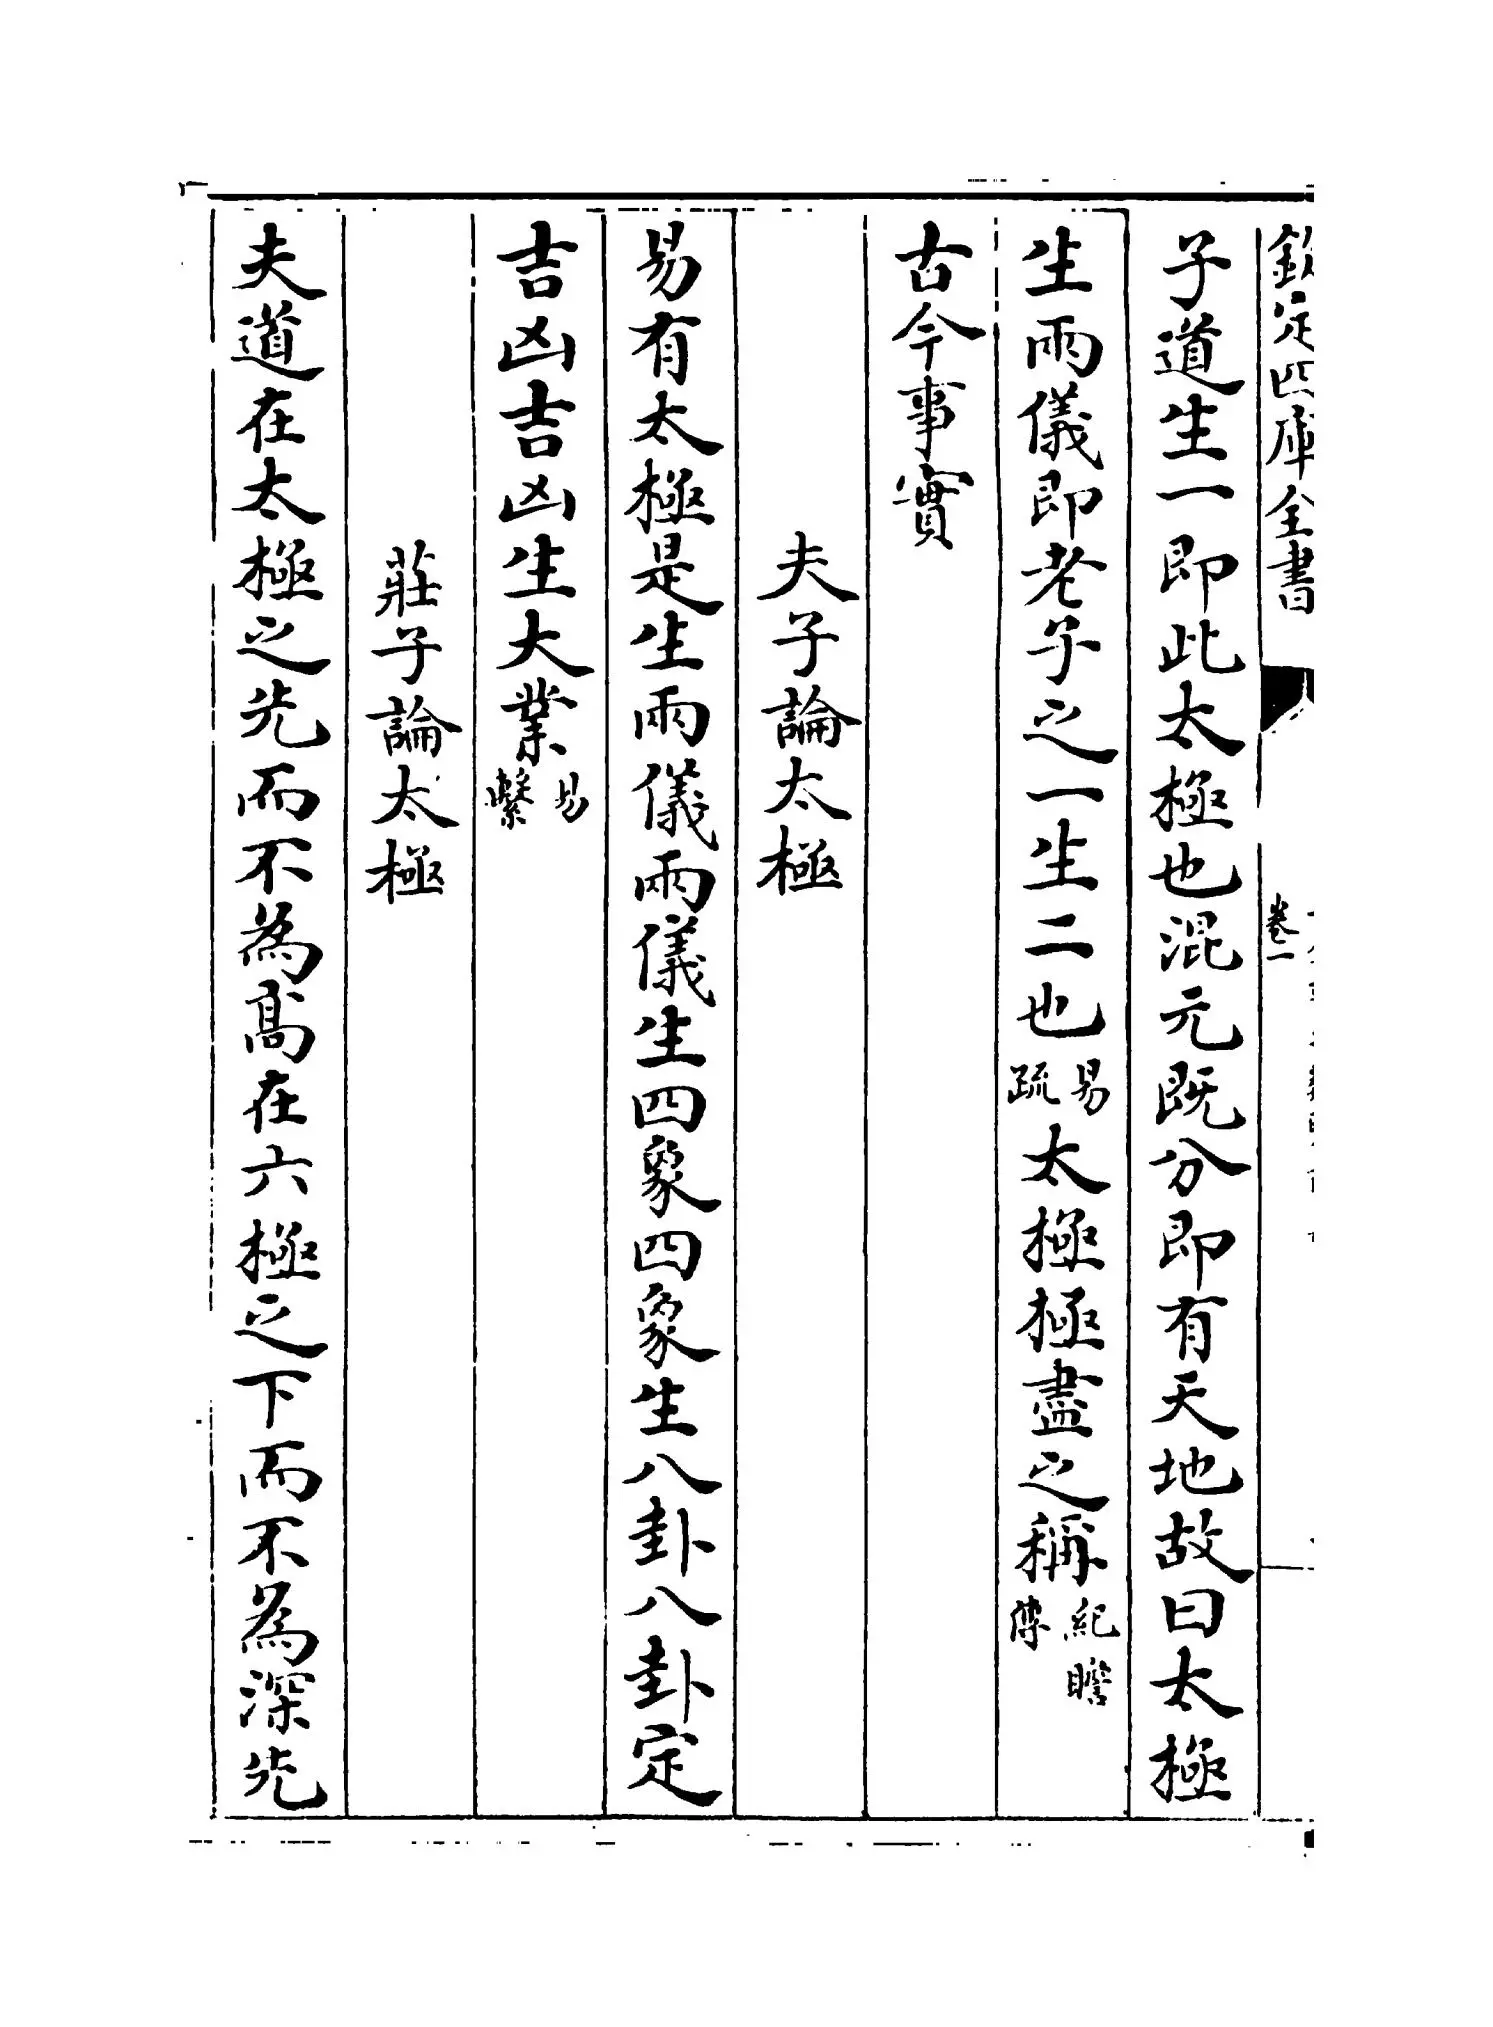 欽定四庫全書
卷一
子道生一即此太極也混元既分即有天地故曰太極
生兩儀即老子之一生二也易疏太極極盡之稱紀瞻傳
古今事實
夫子論太極
易有太極是生兩儀兩儀生四象四象生八卦八卦定
吉凶吉凶生大業易繫
莊子論太極
夫道在太極之先而不為高在六極之下而不為深先